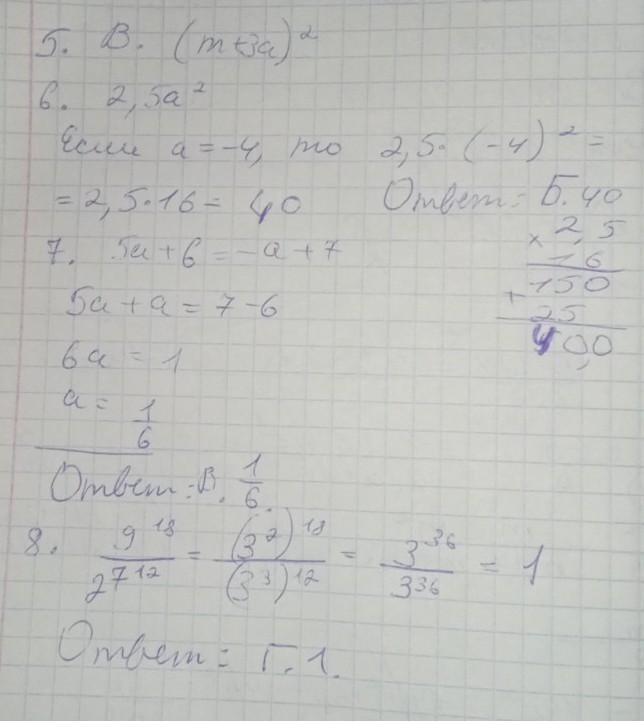 5. В. (m+3a)²
6. 2,5a²
Если a = -4, то 2,5 · (-4)² =
= 2,5 · 16 = 40 Ответ: Б. 40
× 2,5
16
+ 150
25
40,0
7. 5a + 6 = -a + 7
5a + a = 7 - 6
6a = 1
a = 1/6
Ответ: В. 1/6.
8. 9¹⁸/27¹² = (3²)¹⁸/(3³)¹² = 3³⁶/3³⁶ = 1
Ответ: Г. 1.